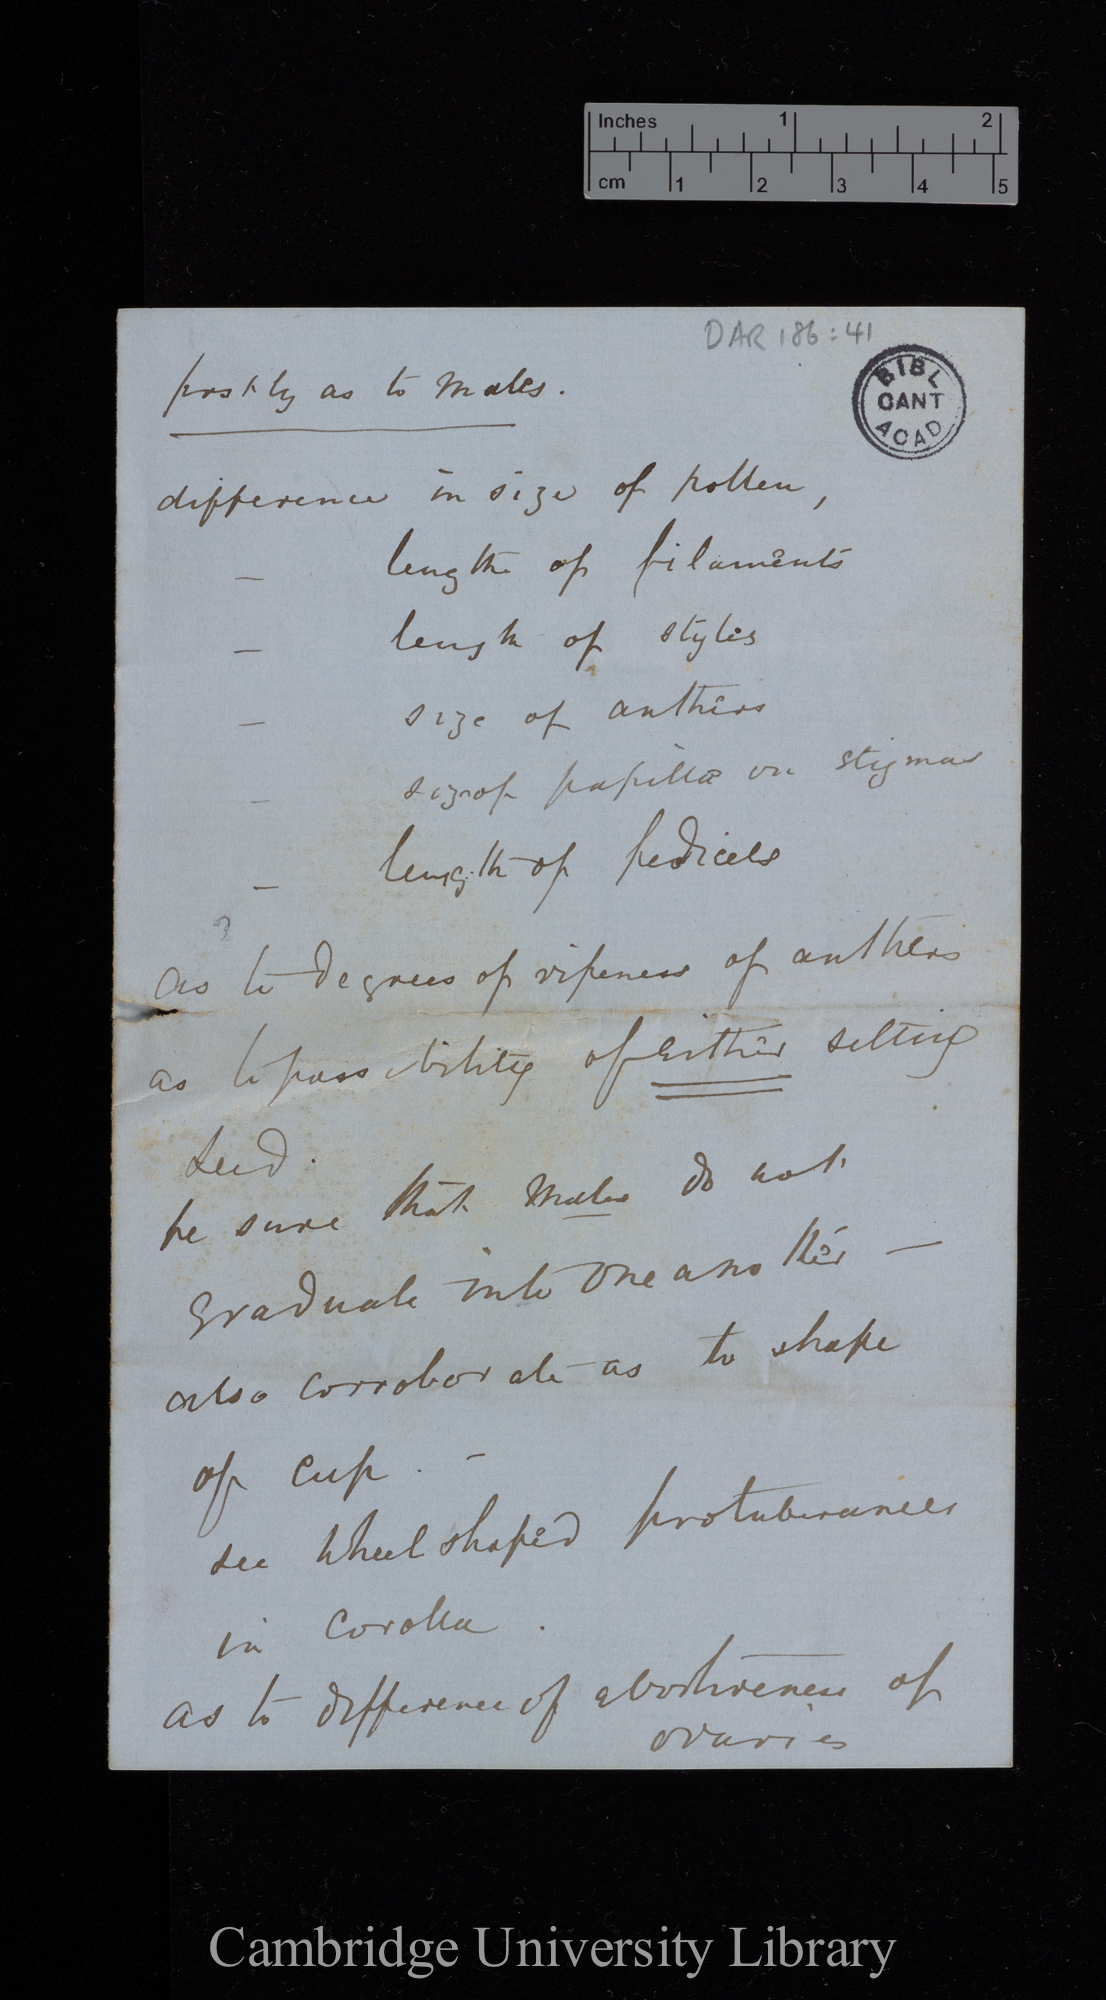 Inches 1 2
cm 1 2 3 4 5
DAR 186:41
BIBL
CANT
ACAD
firstly as to Males.
difference in size of pollen,
— length of filaments
— length of styles
— size of anthers
— size of papillæ on stigmas
— length of pedicels
?
as to degrees of ripeness of anthers
as to possibility of either setting
seed.
be sure that Males do not
graduate into one another —
also corroborate as to shape
of cup. —
see wheel shaped protuberances
in corolla.
as to difference of abortiveness of
ovaries
Cambridge University Library